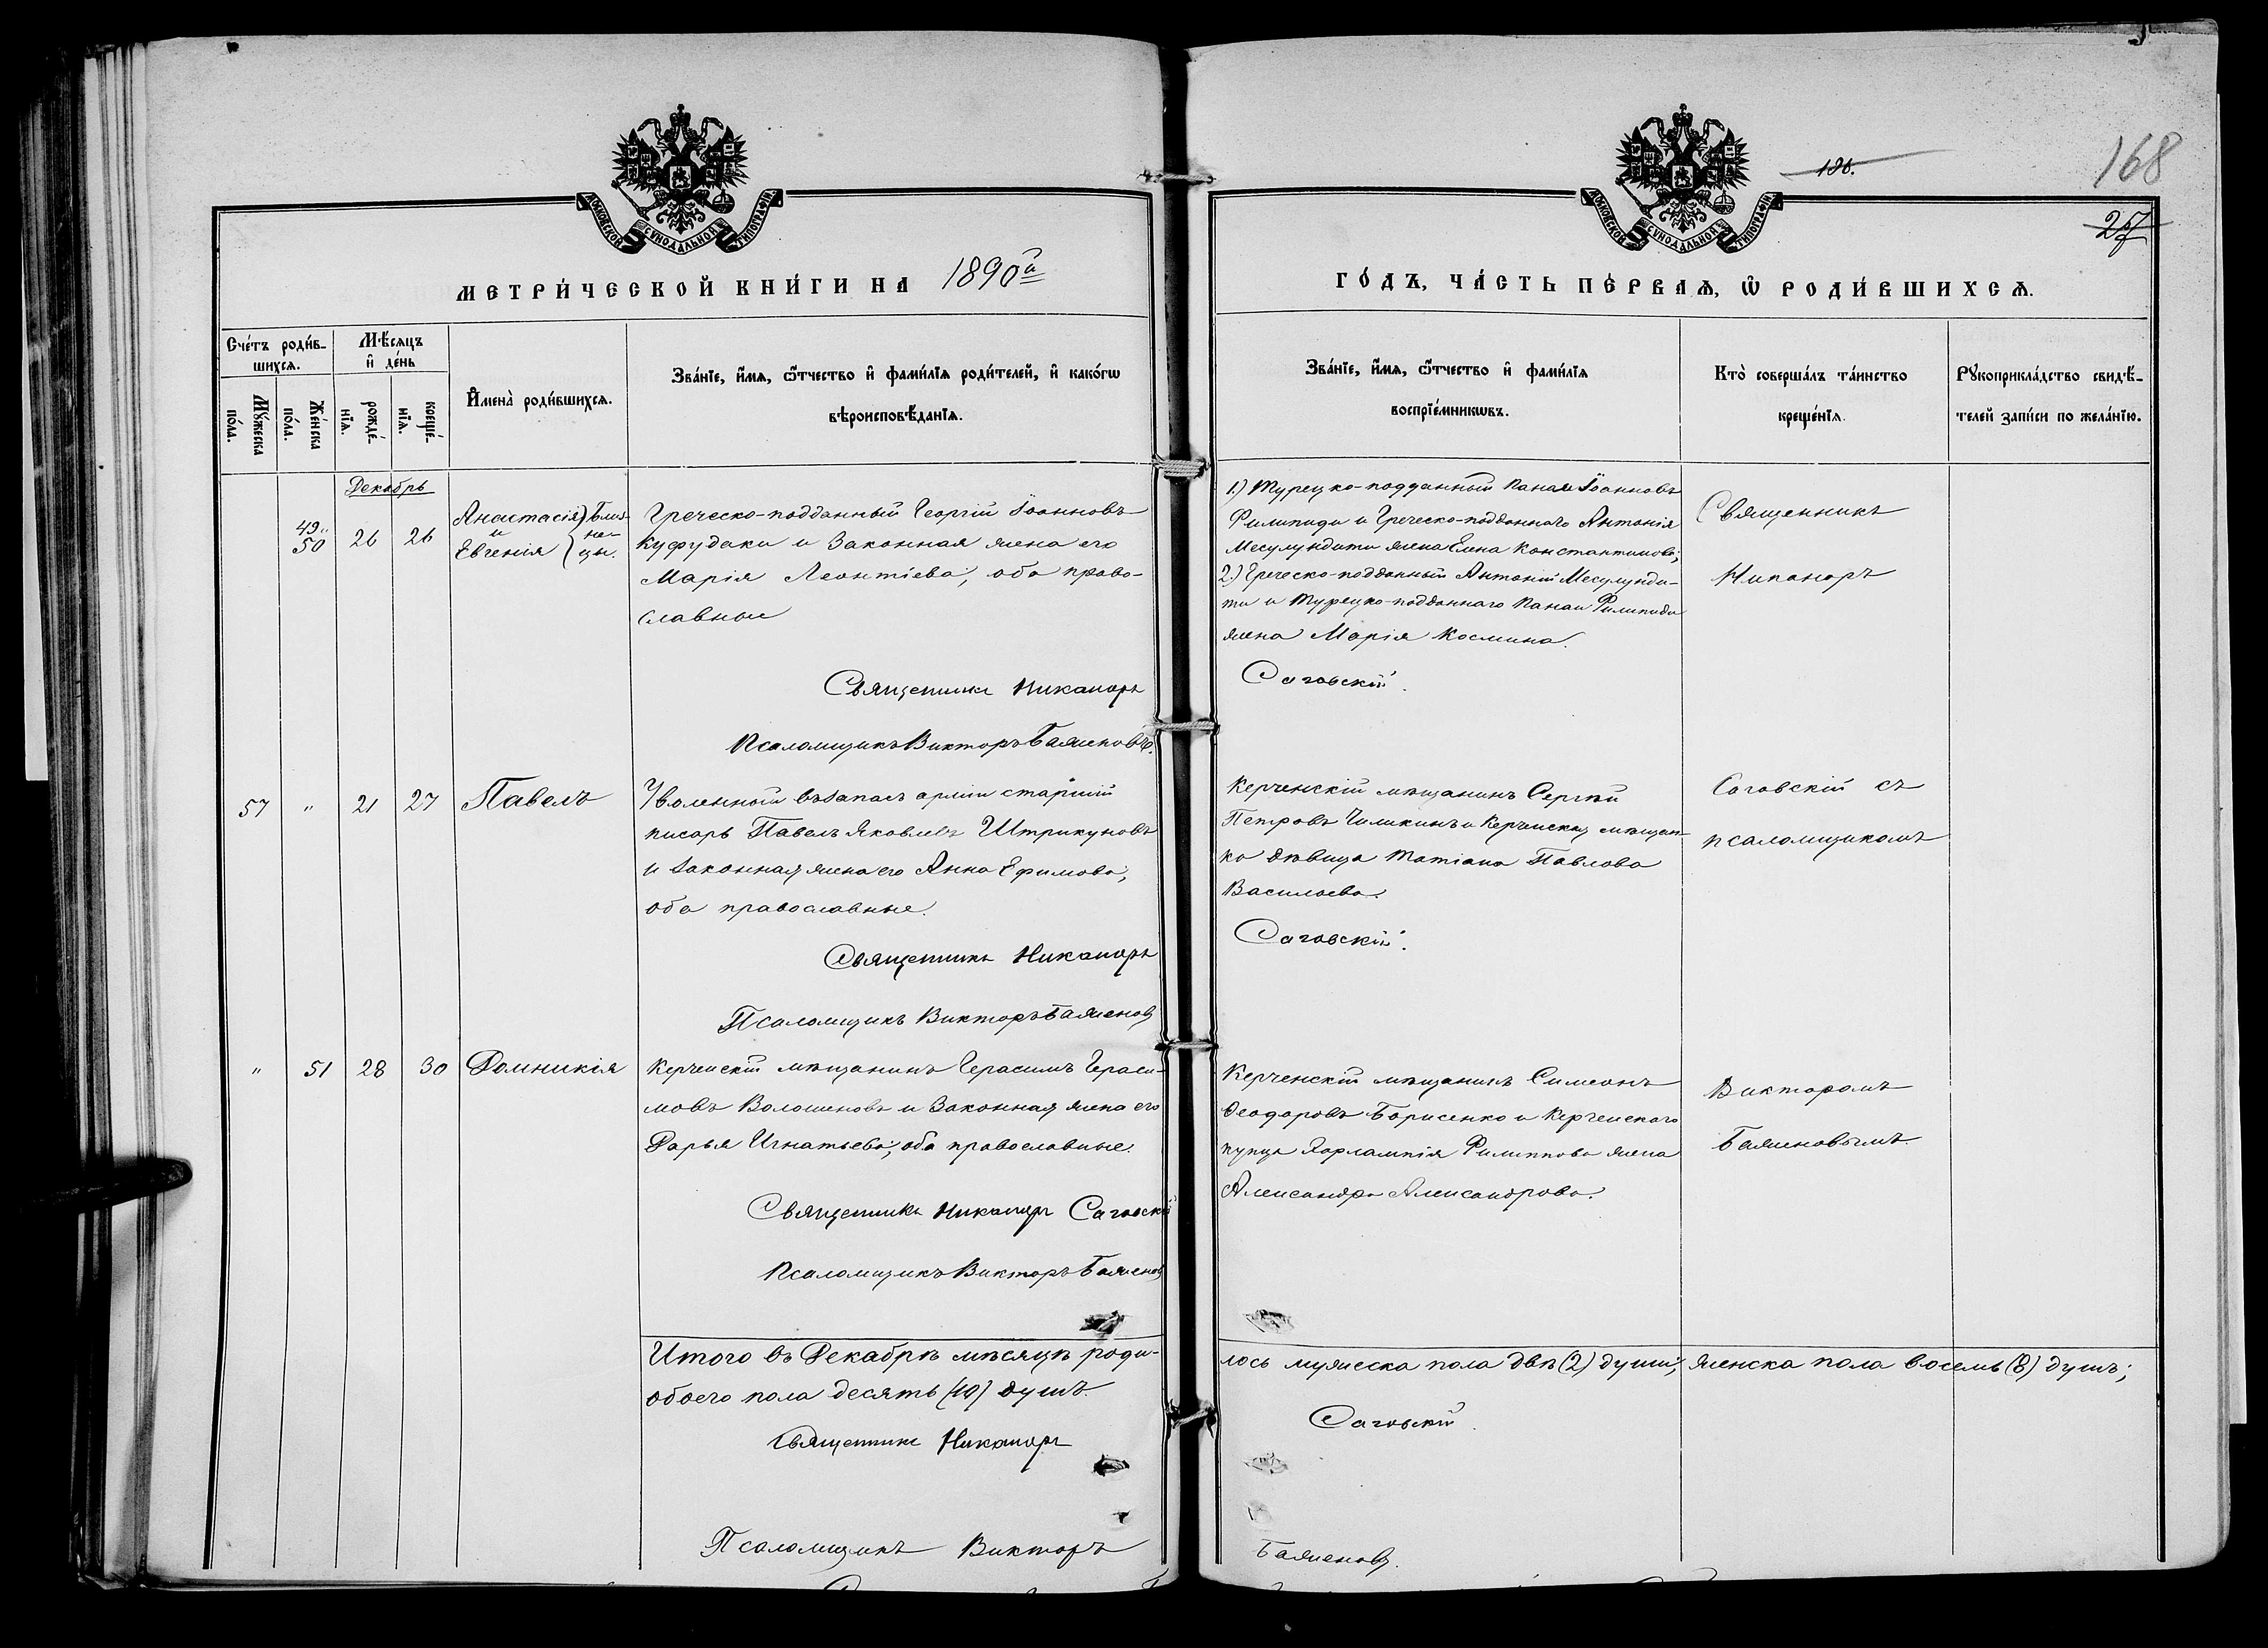 МОСКОВСКОЙ СУНОДАЛЬНОЙ ТИПОГРАФІИ
МЕТРИ́ЧЕСКОЙ КНИ́ГИ НА 1890й
Сче́тъ роди́в-
шихсѧ.
Мѣ́сѧцъ
и҆ де́нь
Мꙋ́жеска
по́ла.
Же́нска
по́ла.
рожде́-
нїѧ.
креще́-
нїѧ.
И҆мена̀ роди́вшихсѧ.
Зва́нїе, и҆́мѧ, ѻ҆́тчество и҆ фами́лїѧ роди́телей, и҆ како́гѡ
вѣроисповѣ́данїѧ.
Декабрь
49„
50
26
26
Анастасія
и
Евгенія
Близ-
не-
цы.
Греческо-подданный Георгій Іоанновъ
Куфудаки и законная жена его
Марія Леонтіева, оба право-
славные
Священникъ Никаноръ
Псаломщикъ Викторъ Баженовъ.
57
„
21
27
Павелъ
Уволенный въ запасъ арміи старшій
писарь Павелъ Яковлевъ Штрикуновъ
и законная жена его Анна Ефимова,
оба православные.
Священникъ Никаноръ
Псаломщикъ Викторъ Баженовъ
„
51
28
30
Домникія
Керченскій мѣщанинъ Герасимъ Гераси-
мовъ Волошеновъ и законная жена его
Дарья Игнатьева, оба православные.
Священникъ Никаноръ Саговскій
Псаломщикъ Викторъ Баженовъ
Итого въ Декабрѣ мѣсяцѣ роди-
обоего пола десять (10) душъ.
Священникъ Никаноръ
Псаломщикъ Викторъ
168
27
МОСКОВСКОЙ СУНОДАЛЬНОЙ ТИПОГРАФІИ
ГО́ДЪ, ЧА́СТЬ ПЕ́РВАѦ, Ѡ҆ РОДИ́ВШИХСѦ.
Зва́нїе, и҆́мѧ, ѻ҆́тчество и҆ фами́лїѧ
воспрїе́мникѡвъ.
Кто̀ соверша́лъ та́инство
креще́нїѧ.
Рꙋкоприкла́дство свидѣ́-
телей за́писи по жела́нїю.
1.) Турецко-подданный Панаи Іоанновъ
Филипиди и Греческо-подданнаго Антонія
Месулундити жена Елена Константинова;
2.) Греческо-подданный Антоній Месулунди-
ти и Турецко-подданнаго Панаи Филипиди
жена Марія Космина.
Саговскій.
Священникъ
Никаноръ
Керченскій мѣщанинъ Сергѣй
Петровъ Чиликинъ и Керченская мѣщан-
ка дѣвица Татіана Павлова
Васильева.
Саговскій.
Саговскій съ
псаломщикомъ
Керченскій мѣщанинъ Симеонъ
Ѳеодоровъ Борисенко и Керченскаго
купца Харлампія Филиппова жена
Александра Александрова.
Викторомъ
Баженовымъ.
лось мужеска пола двѣ (2) души; женска пола восемь (8) душъ;
Саговскій.
Баженовъ.